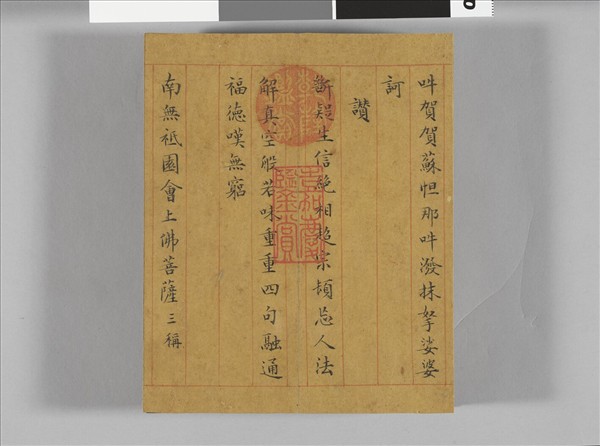 吽賀賀蘇怛那吽潑抹拏娑婆
訶
讃
斷疑生信絶相超宗頓忘人法
解真空般若味重重四句融通
福德嘆無窮
南無祇園會上佛菩薩三稱